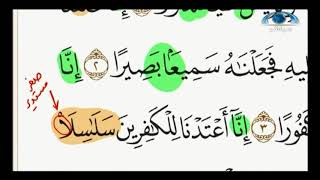 لِيهِ فَجَعَلْنَٰهُ سَمِيعًۢا بَصِيرًا ٢ إِنَّا
كَفُورًا ٣ إِنَّآ أَعْتَدْنَا لِلْكَٰفِرِينَ سَلَٰسِلَا۟
صفر
مستدير